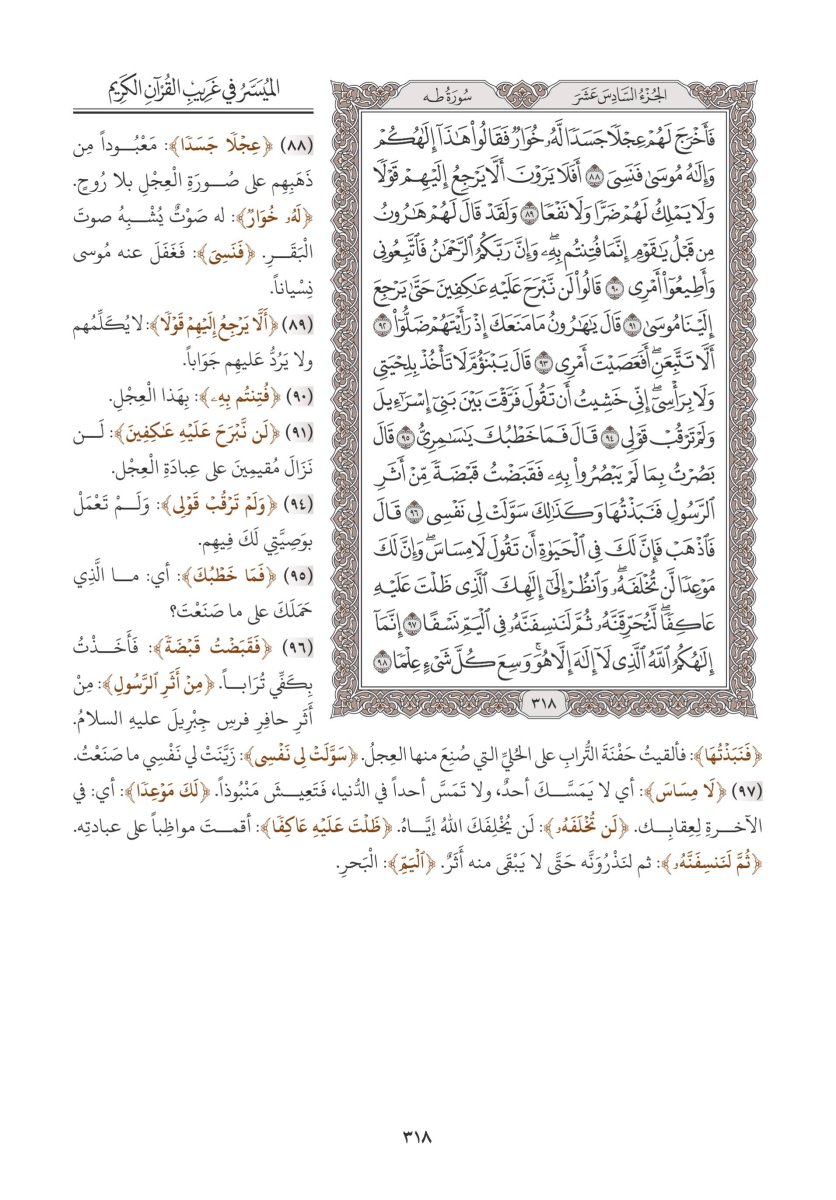 الجُزْءُ السَّادِسَ عَشَرَ
سُورَةُ طه
فَأَخْرَجَ لَهُمْ عِجْلًا جَسَدًا لَّهُۥ خُوَارٌ فَقَالُوا۟ هَٰذَآ إِلَٰهُكُمْ
وَإِلَٰهُ مُوسَىٰ فَنَسِىَ ٨٨ أَفَلَا يَرَوْنَ أَلَّا يَرْجِعُ إِلَيْهِمْ قَوْلًا
وَلَا يَمْلِكُ لَهُمْ ضَرًّا وَلَا نَفْعًا ٨٩ وَلَقَدْ قَالَ لَهُمْ هَٰرُونُ
مِن قَبْلُ يَٰقَوْمِ إِنَّمَا فُتِنتُم بِهِۦۖ وَإِنَّ رَبَّكُمُ ٱلرَّحْمَٰنُ فَٱتَّبِعُونِى
وَأَطِيعُوٓا۟ أَمْرِى ٩٠ قَالُوا۟ لَن نَّبْرَحَ عَلَيْهِ عَٰكِفِينَ حَتَّىٰ يَرْجِعَ
إِلَيْنَا مُوسَىٰ ٩١ قَالَ يَٰهَٰرُونُ مَا مَنَعَكَ إِذْ رَأَيْتَهُمْ ضَلُّوٓا۟ ٩٢
أَلَّا تَتَّبِعَنِۖ أَفَعَصَيْتَ أَمْرِى ٩٣ قَالَ يَبْنَؤُمَّ لَا تَأْخُذْ بِلِحْيَتِى
وَلَا بِرَأْسِىٓۖ إِنِّى خَشِيتُ أَن تَقُولَ فَرَّقْتَ بَيْنَ بَنِىٓ إِسْرَٰٓءِيلَ
وَلَمْ تَرْقُبْ قَوْلِى ٩٤ قَالَ فَمَا خَطْبُكَ يَٰسَٰمِرِىُّ ٩٥ قَالَ
بَصُرْتُ بِمَا لَمْ يَبْصُرُوا۟ بِهِۦ فَقَبَضْتُ قَبْضَةً مِّنْ أَثَرِ
ٱلرَّسُولِ فَنَبَذْتُهَا وَكَذَٰلِكَ سَوَّلَتْ لِى نَفْسِى ٩٦ قَالَ
فَٱذْهَبْ فَإِنَّ لَكَ فِى ٱلْحَيَوٰةِ أَن تَقُولَ لَا مِسَاسَۖ وَإِنَّ لَكَ
مَوْعِدًا لَّن تُخْلَفَهُۥۖ وَٱنظُرْ إِلَىٰٓ إِلَٰهِكَ ٱلَّذِى ظَلْتَ عَلَيْهِ
عَاكِفًاۖ لَّنُحَرِّقَنَّهُۥ ثُمَّ لَنَنسِفَنَّهُۥ فِى ٱلْيَمِّ نَسْفًا ٩٧ إِنَّمَآ
إِلَٰهُكُمُ ٱللَّهُ ٱلَّذِى لَآ إِلَٰهَ إِلَّا هُوَۚ وَسِعَ كُلَّ شَىْءٍ عِلْمًا ٩٨
٣١٨
المُيَسَّرُ في غَرِيبِ القُرْآنِ الكَرِيمِ
(٨٨) ﴿عِجْلًا جَسَدًا﴾: مَعْبُوداً مِن
ذَهَبِهِم على صُورَةِ الْعِجْلِ بلا رُوحٍ.
﴿لَهُۥ خُوَارٌ﴾: له صَوْتٌ يُشْبِهُ صوتَ
الْبَقَرِ. ﴿فَنَسِىَ﴾: فَغَفَلَ عنه موسى
نِسْياناً.
(٨٩) ﴿أَلَّا يَرْجِعُ إِلَيْهِمْ قَوْلًا﴾: لا يُكَلِّمُهم
ولا يَرُدُّ عَليهم جَوَاباً.
(٩٠) ﴿فُتِنتُم بِهِۦ﴾: بِهَذا الْعِجْلِ.
(٩١) ﴿لَن نَّبْرَحَ عَلَيْهِ عَٰكِفِينَ﴾: لَن
نَزَالَ مُقيمِينَ على عِبادَةِ الْعِجْلِ.
(٩٤) ﴿وَلَمْ تَرْقُبْ قَوْلِى﴾: وَلَمْ تَعْمَلْ
بوَصِيَّتِي لَكَ فِيهِم.
(٩٥) ﴿فَمَا خَطْبُكَ﴾: أي: ما الَّذِي
حَمَلَكَ على ما صَنَعْتَ؟
(٩٦) ﴿فَقَبَضْتُ قَبْضَةً﴾: فَأَخَذْتُ
بِكَفِّي تُرَاباً. ﴿مِنْ أَثَرِ ٱلرَّسُولِ﴾: مِنْ
أَثَرِ حافِرِ فرسِ جِبْرِيلَ عليه السلامُ.
﴿فَنَبَذْتُهَا﴾: فألقيتُ حَفْنَةَ التُّرابِ على الحُليِّ التي صُنِعَ منها العِجلُ. ﴿سَوَّلَتْ لِى نَفْسِى﴾: زَيَّنَتْ لي نَفْسِي ما صَنَعْتُ.
(٩٧) ﴿لَا مِسَاسَ﴾: أي لا يَمَسَّكَ أحدٌ، ولا تَمَسَّ أحداً في الدُّنيا، فَتَعِيشَ مَنْبُوذاً. ﴿لَكَ مَوْعِدًا﴾: أي: في
الآخرةِ لِعِقابِك. ﴿لَن تُخْلَفَهُۥ﴾: لَن يُخْلِفَكَ اللهُ إيَّاهُ. ﴿ظَلْتَ عَلَيْهِ عَاكِفًا﴾: أقمتَ مواظِباً على عبادتِه.
﴿ثُمَّ لَنَنسِفَنَّهُۥ﴾: ثم لنَذْرُوَنَّه حَتَّى لا يَبْقَى منه أَثَرٌ. ﴿ٱلْيَمِّ﴾: الْبَحرِ.
٣١٨